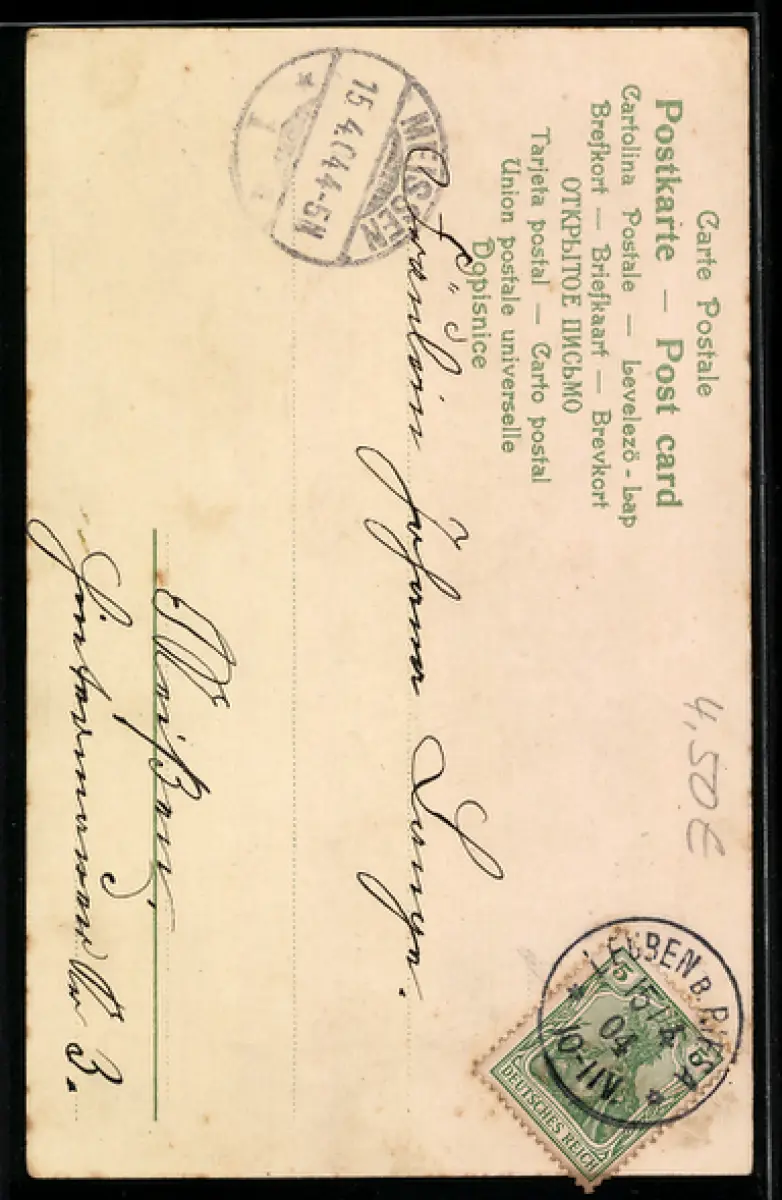 Carte Postale
Postkarte — Post card
Cartolina Postale — Levelező-Lap
Brefkort — Briefkaart — Brevkort
ОТКРЫТОЕ ПИСЬМО
Tarjeta postal — Carto postal
Union postale universelle
Dopisnice
MEISSEN
15.4.04.4-5N
4,50€
LEUBEN B. RIESA
15/4
04
10-11V.
5 5
DEUTSCHES REICH
Fräulein
Johanna Lunze.
Meißen,
3.